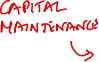 CAPITAL
MAINTENANCE